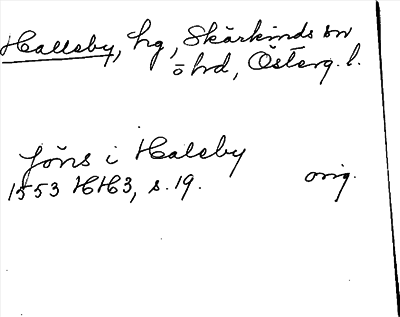 Hallsby, hg, Skärkinds sn
o hd, Österg. l.
Jöns i Halsby
1553 HH3, s. 19. orig.